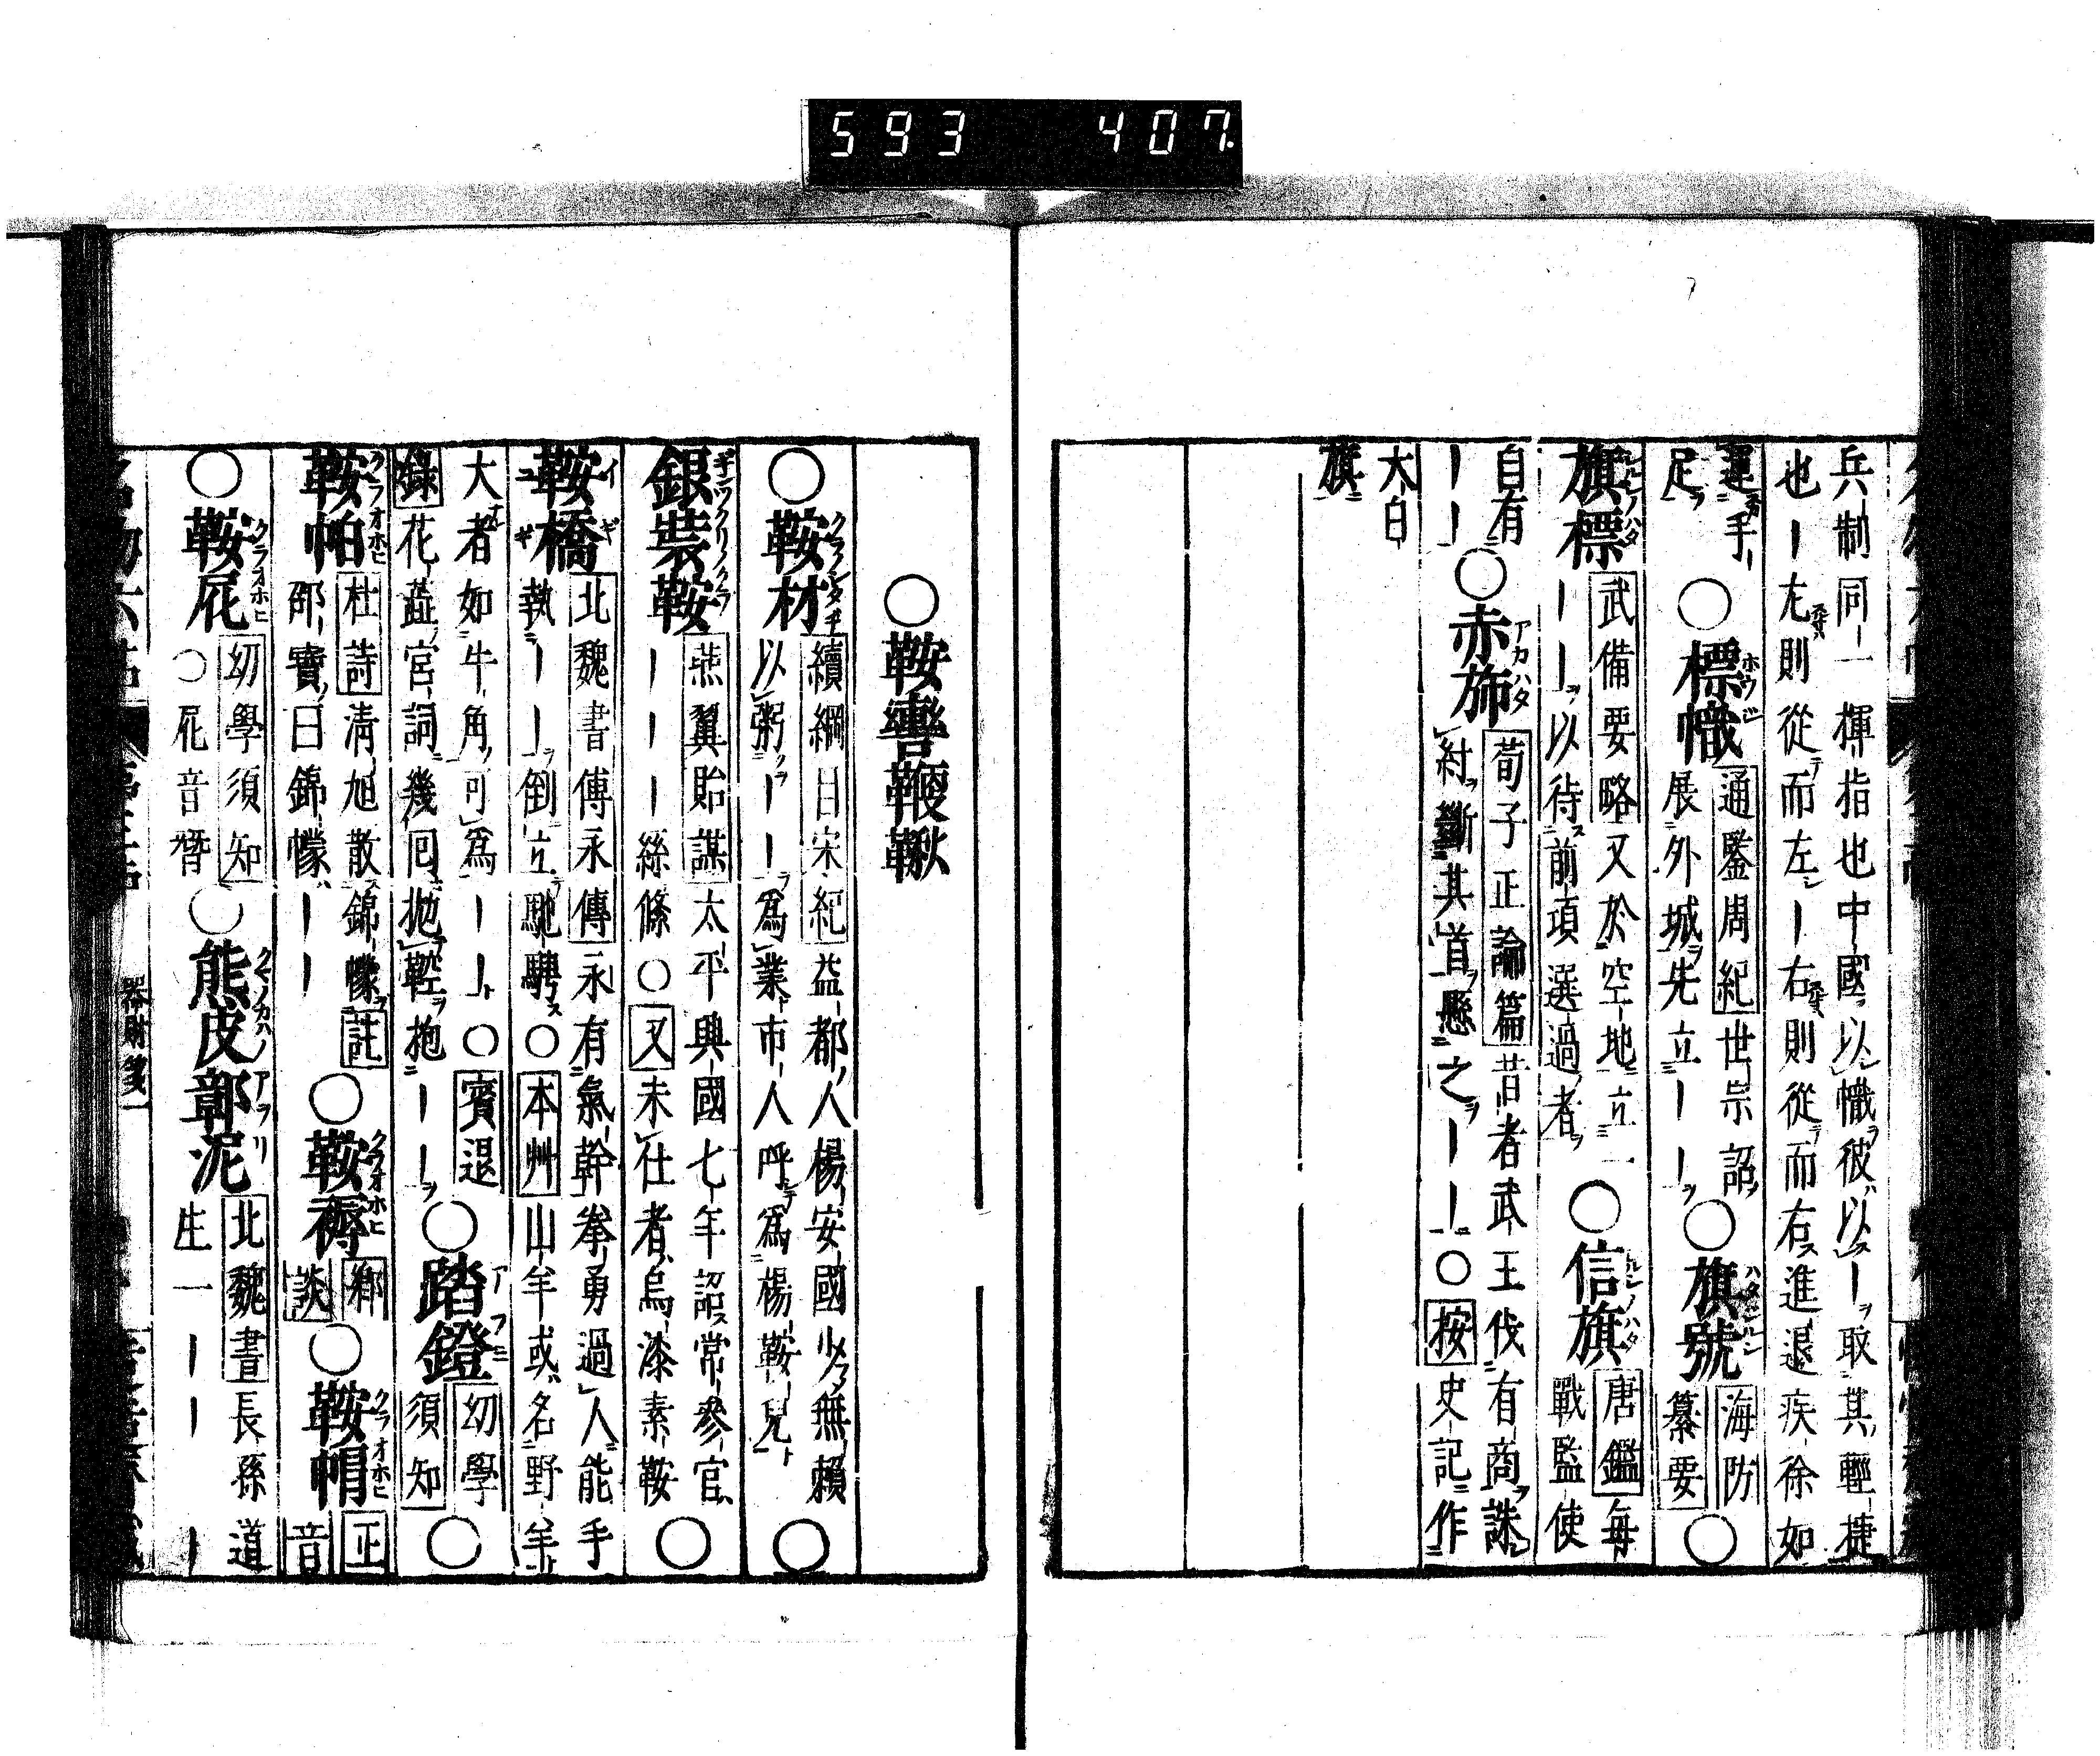 593 407.
兵制同一揮指也中國以幟彼以ー取其輕捷
也ー左則從而左ー右則從而右進退疾徐如
運手
足
○標幟
通鑒周紀世宗詔
展外城先立ーー
○旗號
海防
纂要
○
旗標
武備要略又於空地立一
ーーー以待前項選過者
○信旗
唐鑑每
戰監使
自有
ーー
○赤斾
荀子正論篇昔者武王伐有商誅
紂斷其首懸之ーー○按史記作
大白
旗
○鞍轡鞭鞦
○鞍材
續綱目宋紀益都人楊安國少無賴
以粥ーー爲業市人呼爲楊鞍兒
○
銀裝鞍
燕翼貽謀太平興國七年詔常參官
ーーー絲絛○又未仕者烏漆素鞍
○
鞍橋
北魏書傅永傳永有氣幹拳勇過人能手
執ーー倒立馳騁○本艸山羊或名野羊
大者如牛角可爲ーー○賓退
錄花蘂宮詞幾回拋鞚抱ーー
○踏鐙
幼學
須知
○
鞍帕
杜詩淸旭散錦幪註
邵寶曰錦幪ーー
○鞍褥
鄉
談
○鞍帽
正
音
○鞍屉
幼學須知
○屉音替
○熊皮鄣泥
北魏書長孫道
生一ーーー
器財箋一